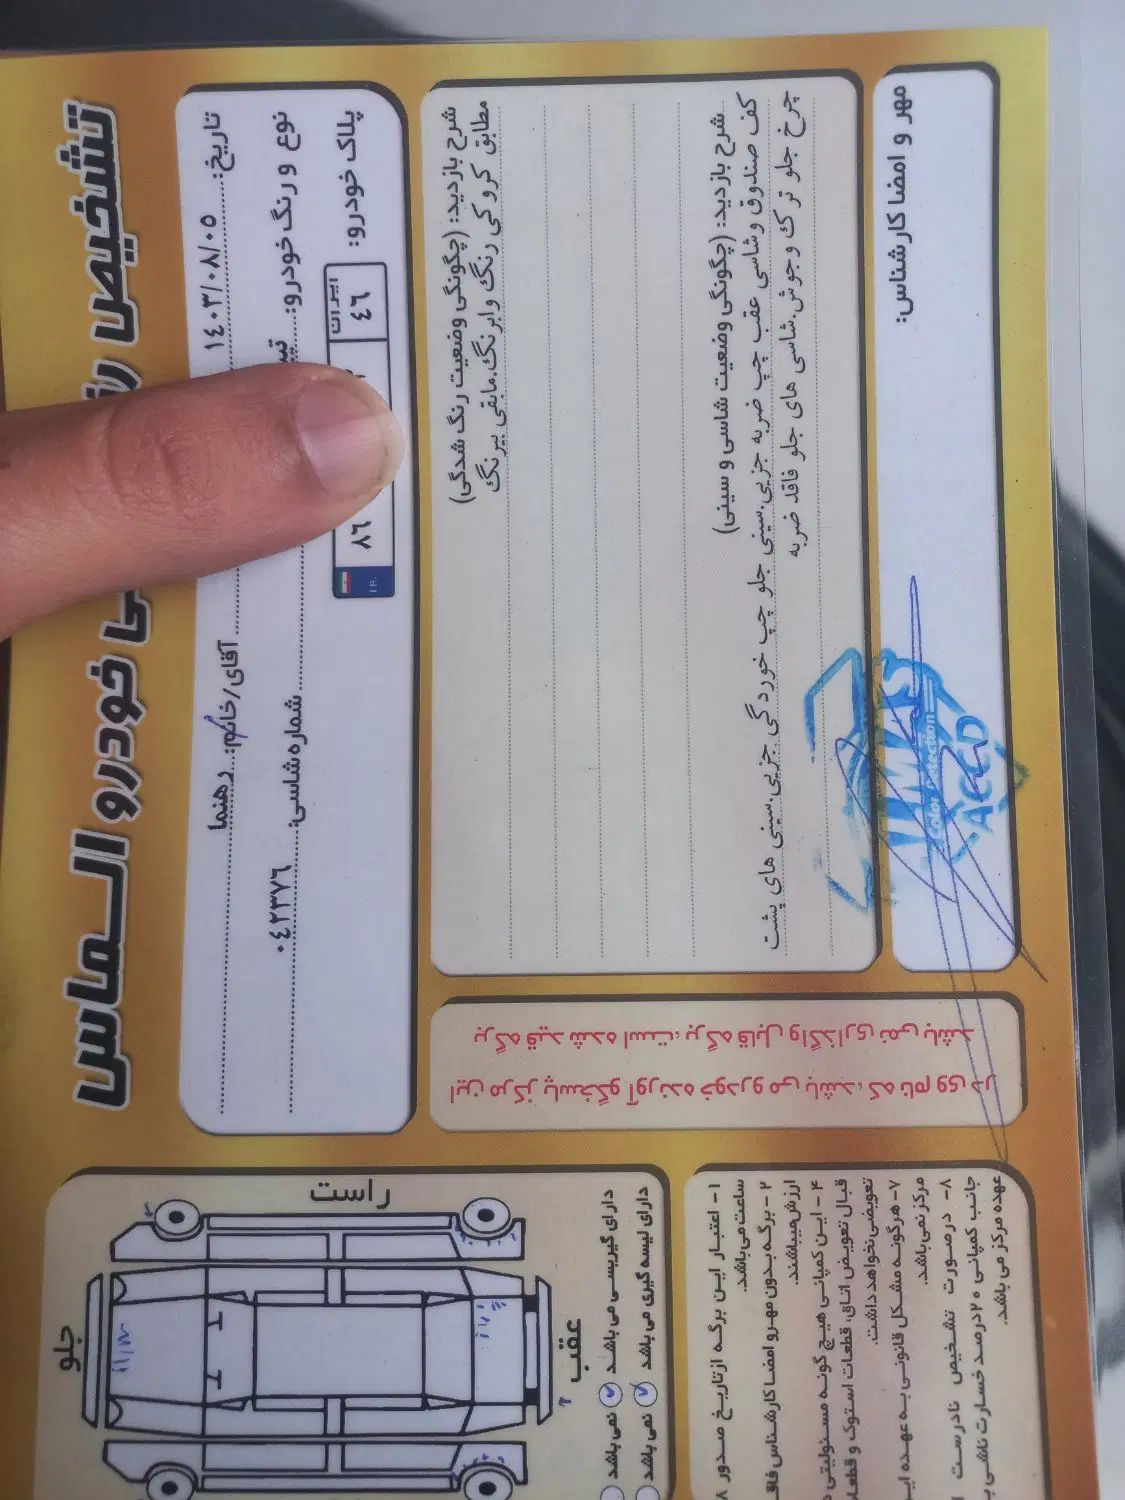 تشخیص
ی خودرو المـاس
تاریخ: ۱۴۰۳/۰۸/۰۵
آقای/خانم: رهنما
نوع و رنگ خودرو:
شماره شاسی: ۰۴۲۳۷۶
پلاک خودرو:
ایران
۴۶
۸۶
I.R.
شرح بازدید: (چگونگی وضعیت رنگ شدگی)
مطابق کروکی رنگ وابرنگ.مابقی بیرنگ
شرح بازدید: (چگونگی وضعیت شاسی و سینی)
کف صندوق وشاسی عقب چپ ضربه جزیی.سینی جلو چپ خوردگی جزیی.سینی های پشت
چرخ جلو ترک وجوش.شاسی های جلو فاقد ضربه
مهر و امضا کارشناس:
ALMAS
Color Detection
این مرکز پاسخگو آورنده خودرو می باشد، که نام وی در
برگه قید شده است، برگه قابل واگذاری نمی باشد
راست
جلو
عقب
دارای گیریسی می باشد
نمی باشد
دارای لیسه گیری می باشد
نمی باشد
۱- اعتبار این برگه از تاریخ صدور ۸
ساعت می‌باشد.
۲- برگه بدون مهر و امضا کارشناس فاق
ارزش میباشند.
۴- این کمپانی هیچ گونه مسئولیتی د
قبال تعویض اتاق، قطعات استوک و قطعا
تعویضی نخواهد داشت.
۷- هرگونه مشکل قانونی به عهده ایـ
مرکز نمی باشد.
۸- درصورت تشخیص نادرست از
جانب کمپانی ۲۰درصد خسارت ناشی بـ
عهده مرکز می باشد.